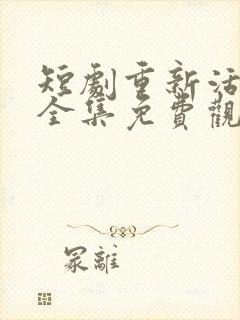 短劇重新活
全集免費觀
冢離